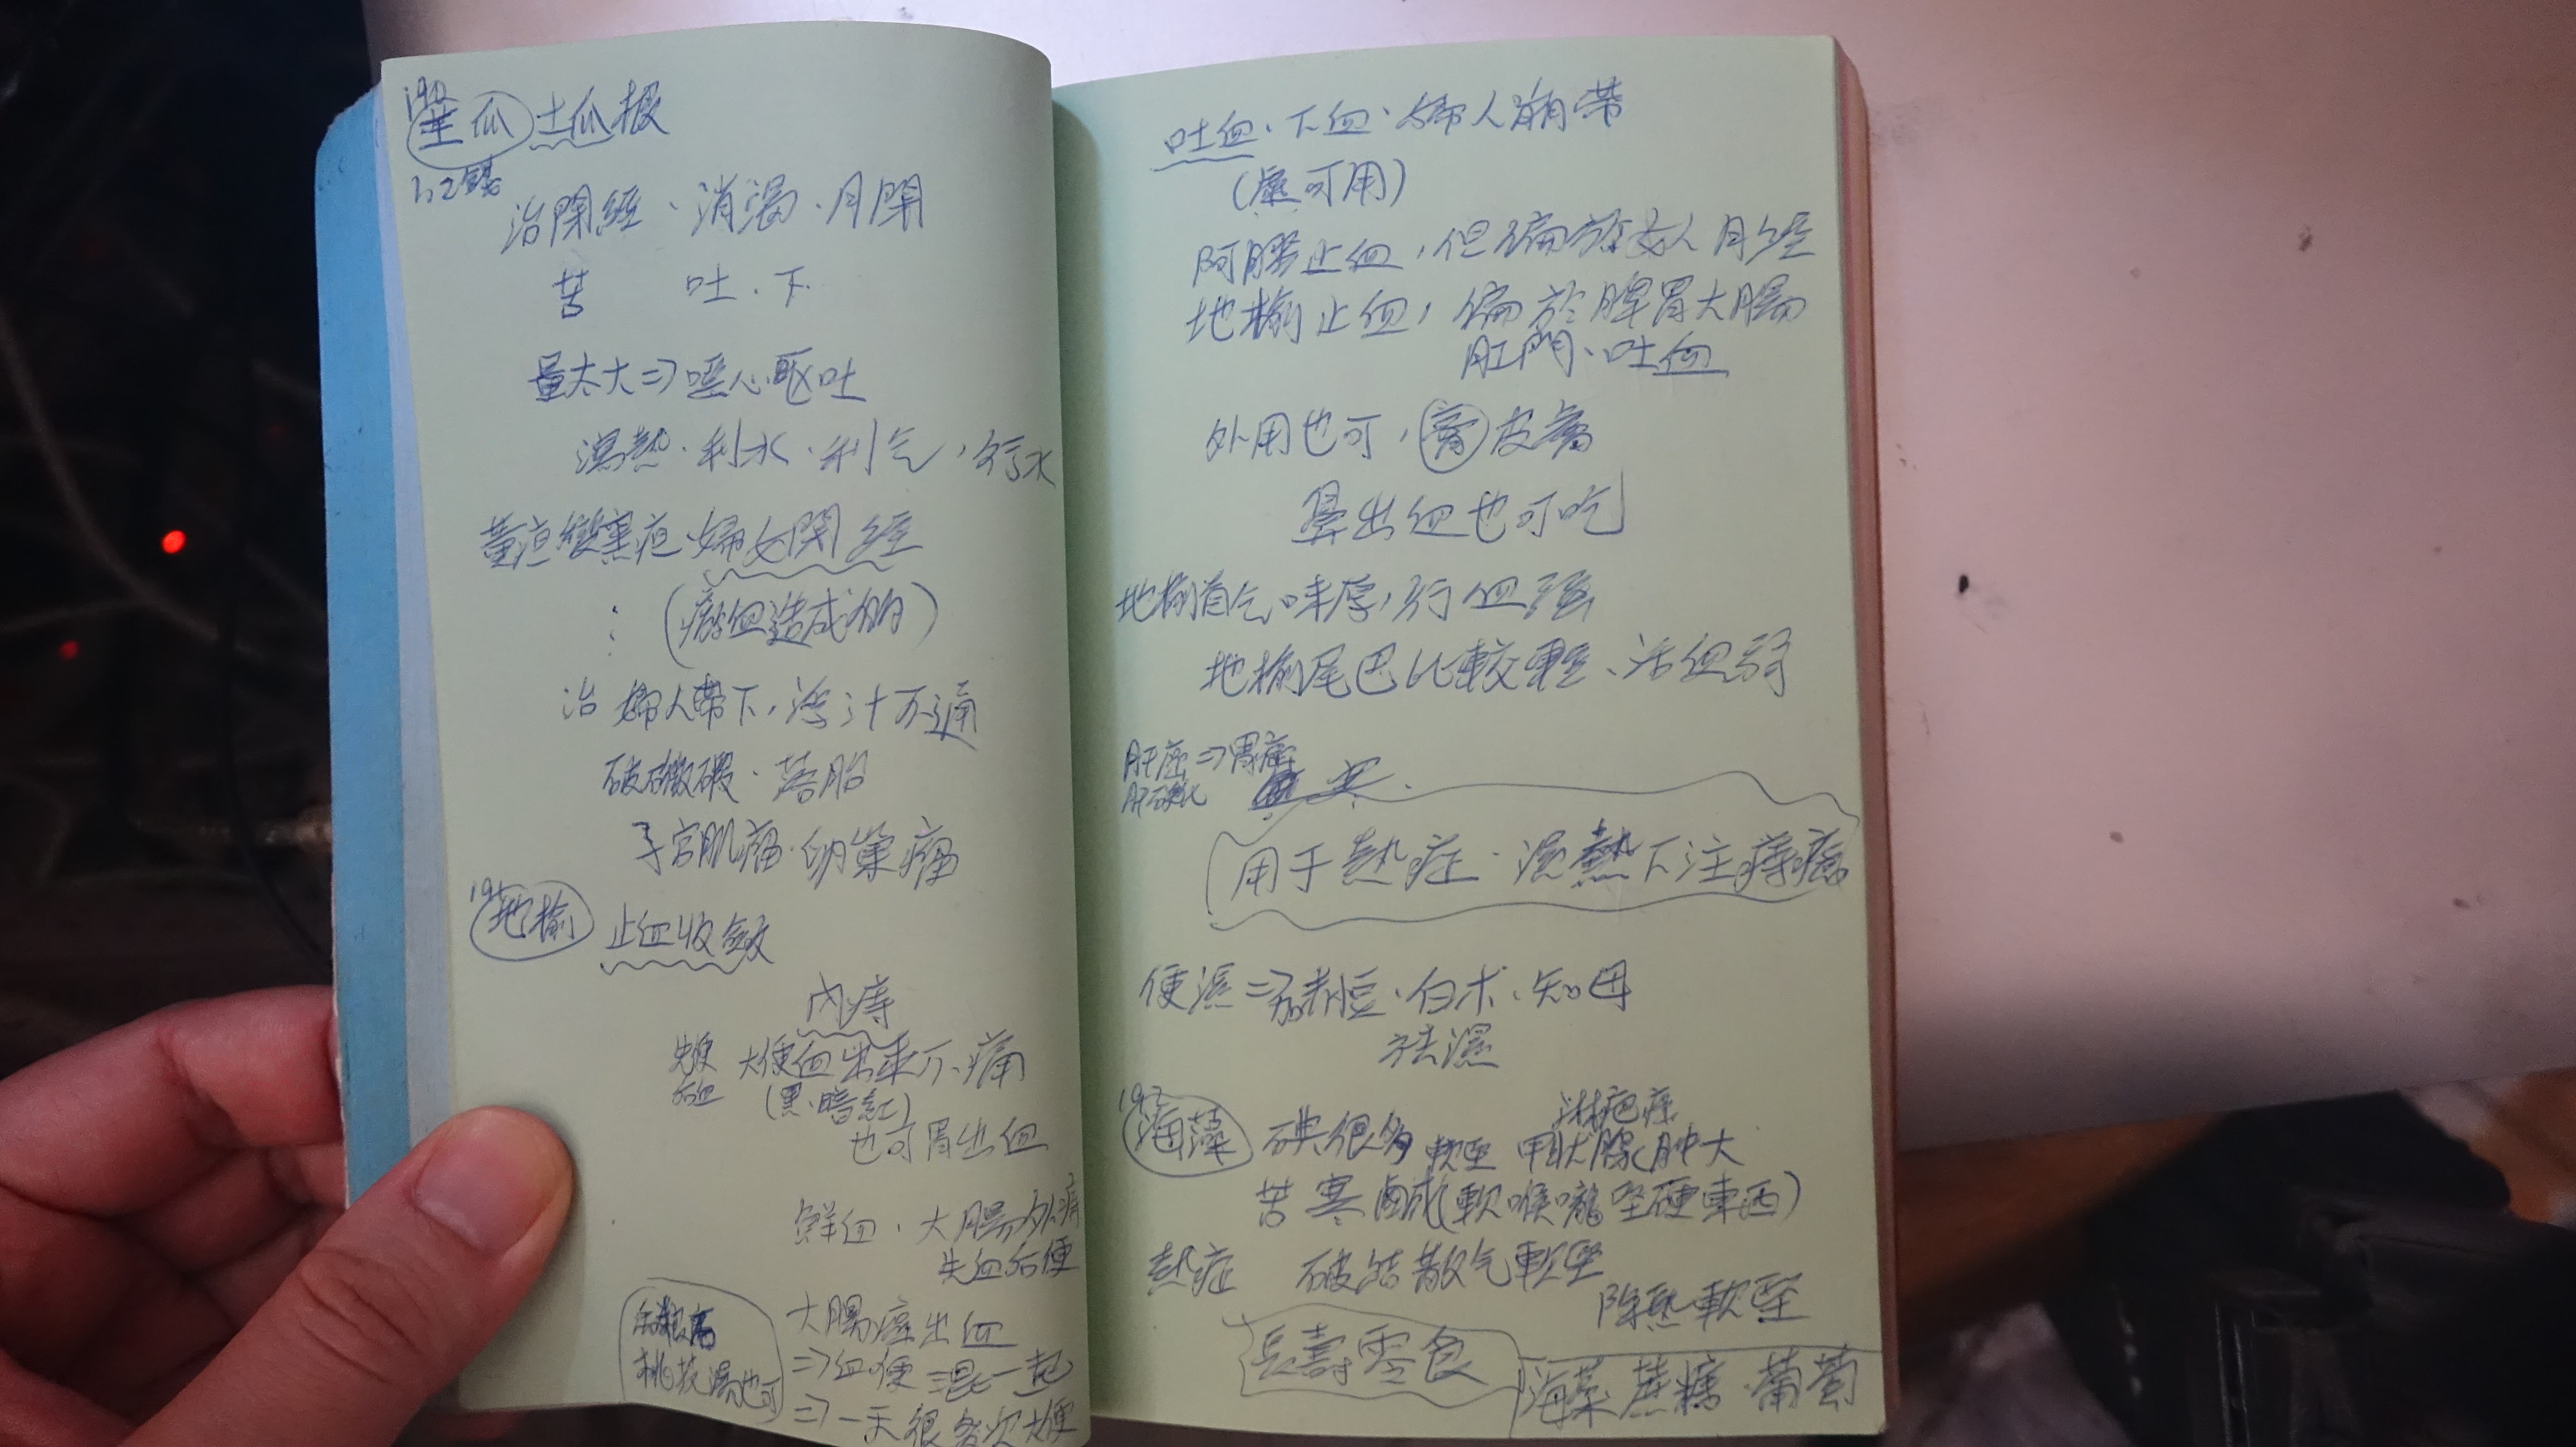 王瓜 土瓜根
1,2錢
治閉經、消渴、月閉
苦 吐、下
量太大⇒噁心嘔吐
瀉熱、利水、利气,行水
黃疸變黑疸、婦女閉經
(瘀血造成的)
治 婦人帶下,汁不通
破癥瘕、落胎
子宮肌瘤、卵巢瘤
地榆 止血收斂
內痔
先便后血 大便血出來不痛
(黑、暗紅)
也可胃出血
鮮血、大腸外痔
先血后便
大腸癌出血
⇒血便混一起
⇒一天很多次大便
湯也可
吐血、下血、婦人崩帶
(處可用)
阿膠止血,但偏於女人月經
地榆止血,偏於脾胃大腸
肛門、吐血
外用也可,膏皮膚
鼻出血也可吃
地榆首气味厚,行血強
地榆尾巴比較輕、活血弱
肝癌⇒胃癌
肝硬化
用于熱症、濕熱下注痔瘡
便濕⇒ 白朮、知母
祛濕
淋巴癌
海藻 碘很多 軟堅 甲狀腺腫大
苦寒鹹(軟喉嚨堅硬東西)
熱症 破結散气軟堅
除熱軟堅
長壽零食 海藻 蔗糖 葡萄